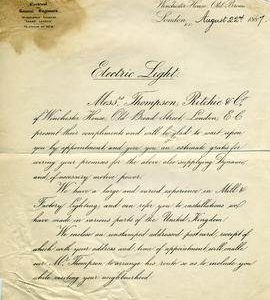 Electrical
General Engineers
Winchester House, Old Broad
London, August 22nd 1887
Electric Light.
Messrs. Thompson, Ritchie & Co.
of Winchester House, Old Broad Street, London, E.C.
present their compliments and will be glad to wait upon
you by appointment and give you an estimate gratis for
wiring your premises for the above also supplying Dynamos
and if necessary motive power.
We have a large and varied experience in Mill &
Factory Lighting and can refer you to installations we
have made in various parts of the United Kingdom.
We enclose an unstamped addressed postcard, receipt of
which with your address and time of appointment will enable
our Mr. Thompson to arrange his route so as to include you
while visiting your neighbourhood.